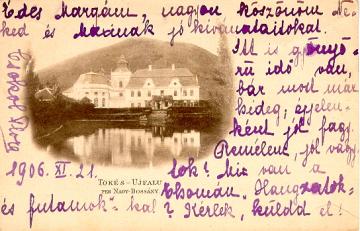 Édes Margám, nagyon köszönöm Ne-
ked és Maxinak jó kívánataitokat.
Itt is gyönyö-
rű idő van,
bár most már
hideg, éjjelen-
ként jól fagy.
Remélem, jól vagy-
tok! Mi van a
Chomán „Hangzatok
és futamok"-kal? Kérlek, küldd el!
Csókol Póra
1906. XI. 21.
TŐKÉS-UJFALU
PER NAGY-BOSSÁNY.